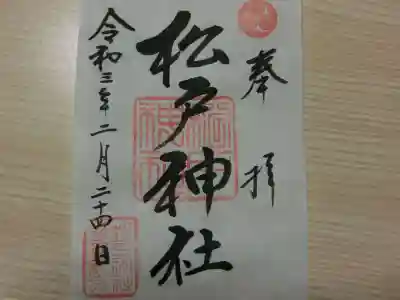 奉拝
松戸神社
令和三年二月二十四日